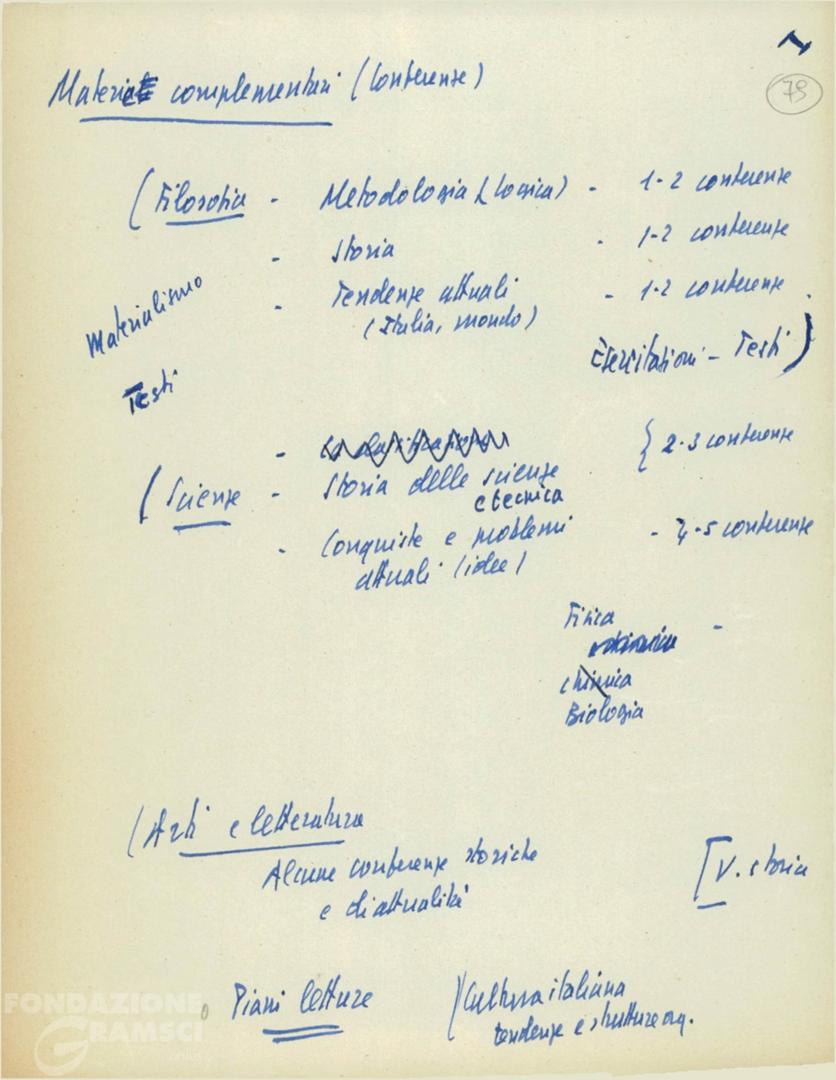 I
79
Materie complementari (Conferenze)
(Filosofia - Metodologia (Logica) - 1-2 conferenze
- Storia - 1-2 conferenze
- Tendenze attuali - 1-2 conferenze
(Italia, mondo)
Materialismo
Esercitazioni - Testi)
Testi
- { 2-3 conferenze
(Scienze - Storia delle scienze
e tecnica
- Conquiste e problemi - 4-5 conferenze
attuali (idee)
Fisica -
chimica
Biologia
(Arti e letteratura
Alcune conferenze storiche
e di attualità
[V. storia
Piani letture
)Cultura italiana
tendenze e strutture org.
FONDAZIONE
GRAMSCI